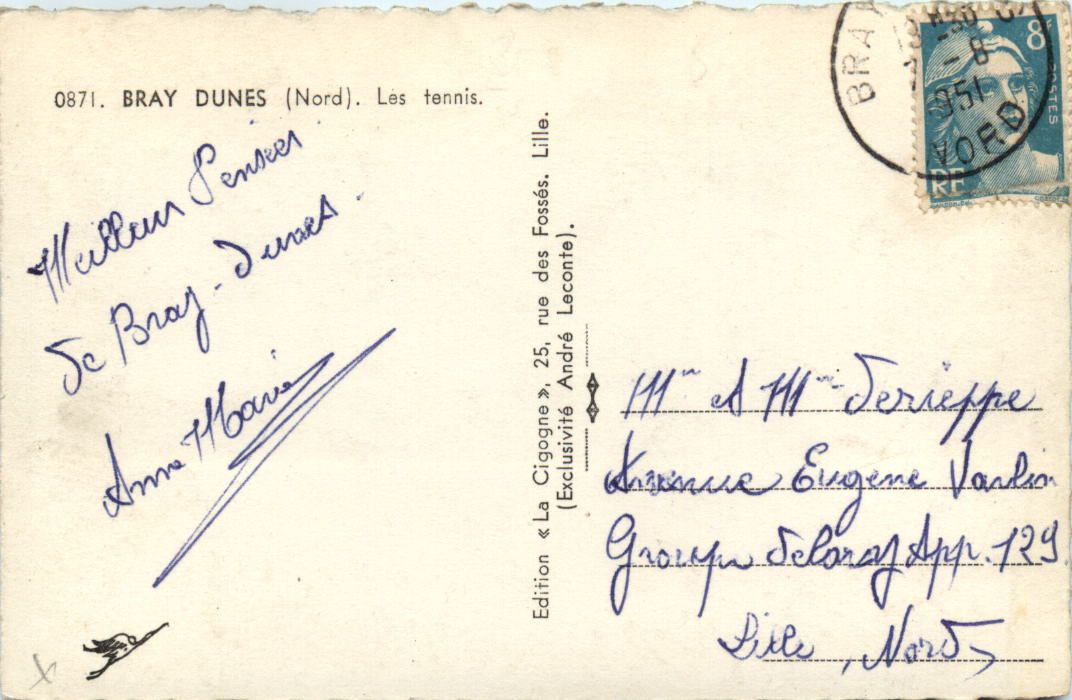 0871. BRAY DUNES (Nord). Les tennis.
Meilleurs Pensées
de Bray-Dunes.
Anne Marie
Edition « La Cigogne », 25, rue des Fossés. Lille.
(Exclusivité André Leconte).
BRAY
8F
POSTES
RF
-8
1951
NORD
Mr et Mme Derieppe
Avenue Eugene Varlin
Groupe Delory App. 129
Lille, Nord